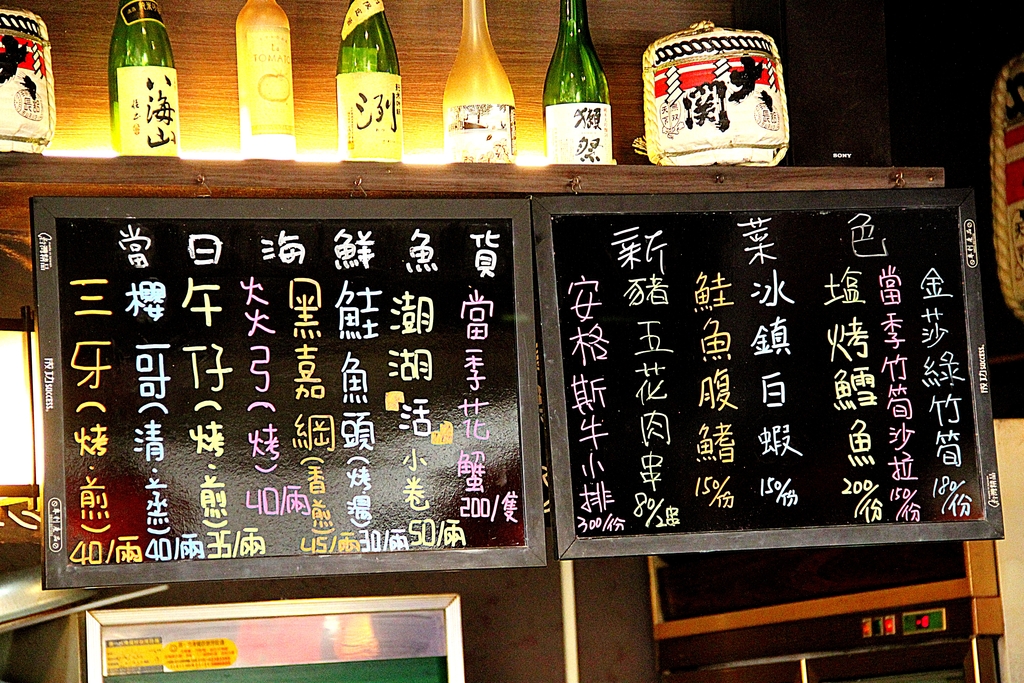 八海山
洌
獺祭
大関
SONY
當日海鮮魚貨
三牙(烤.煎) 40/兩
櫻哥(清.蒸) 40/兩
午仔(烤.煎) 35/兩
火火弓(烤) 40/兩
黑嘉網(香煎) 45/兩
鮭魚頭(烤湯) 30/兩
潮湖活小卷 50/兩
當季花蟹 200/隻
success.
新菜色
安格斯牛小排 300/份
豬五花肉串 80/串
鮭魚腹鰭 150/份
冰鎮白蝦 150/份
塩烤鱈魚 200/份
當季竹筍沙拉 150/份
金莎綠竹筍 180/份
success.